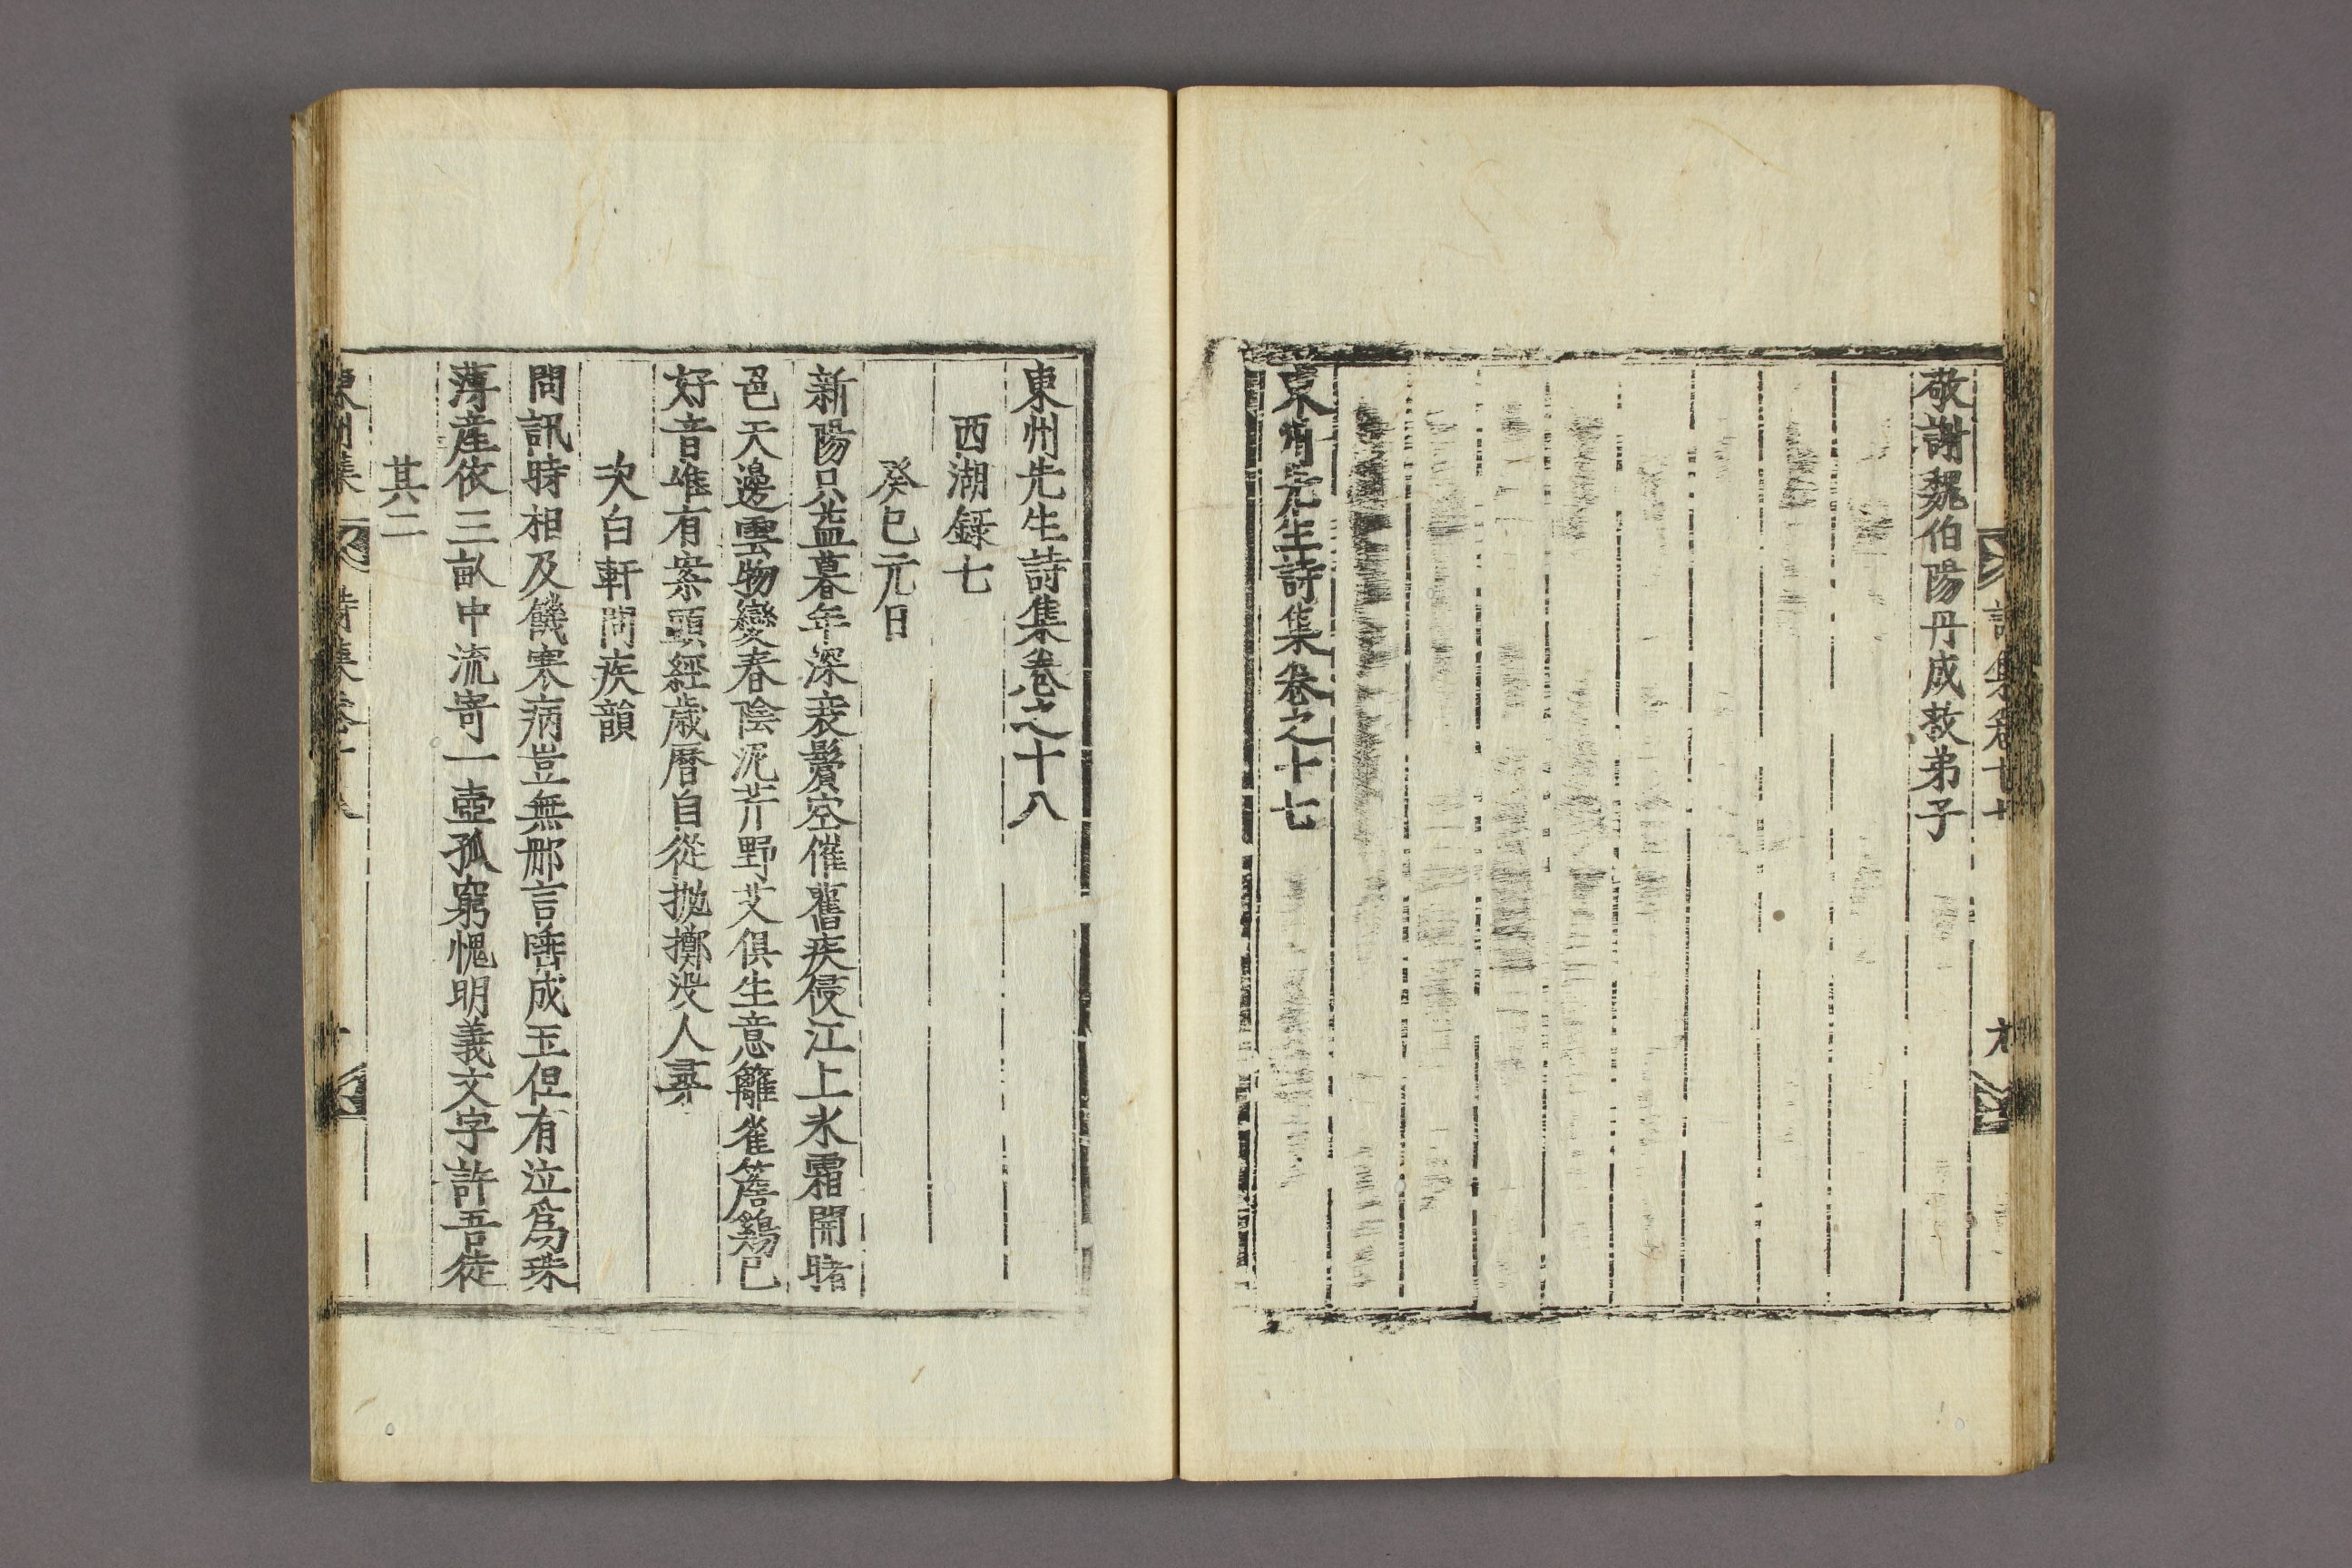 敬謝魏伯陽丹成教弟子
東州先生詩集卷之十七
東州先生詩集卷之十八
西湖錄七
癸巳元日
新陽只益暮年深衰鬢空催舊疾侵江上氷霜開曙
色天邊雲物變春陰泥芹野艾俱生意籬雀簷鷄已
好音唯有案頭經歲曆自從抛擲沒人尋
次白軒問疾韻
問訊時相及饑寒病豈無那言唾成玉但有泣爲珠
薄産依三畝中流寄一壺孤窮愧明義文字許吾徒
其二